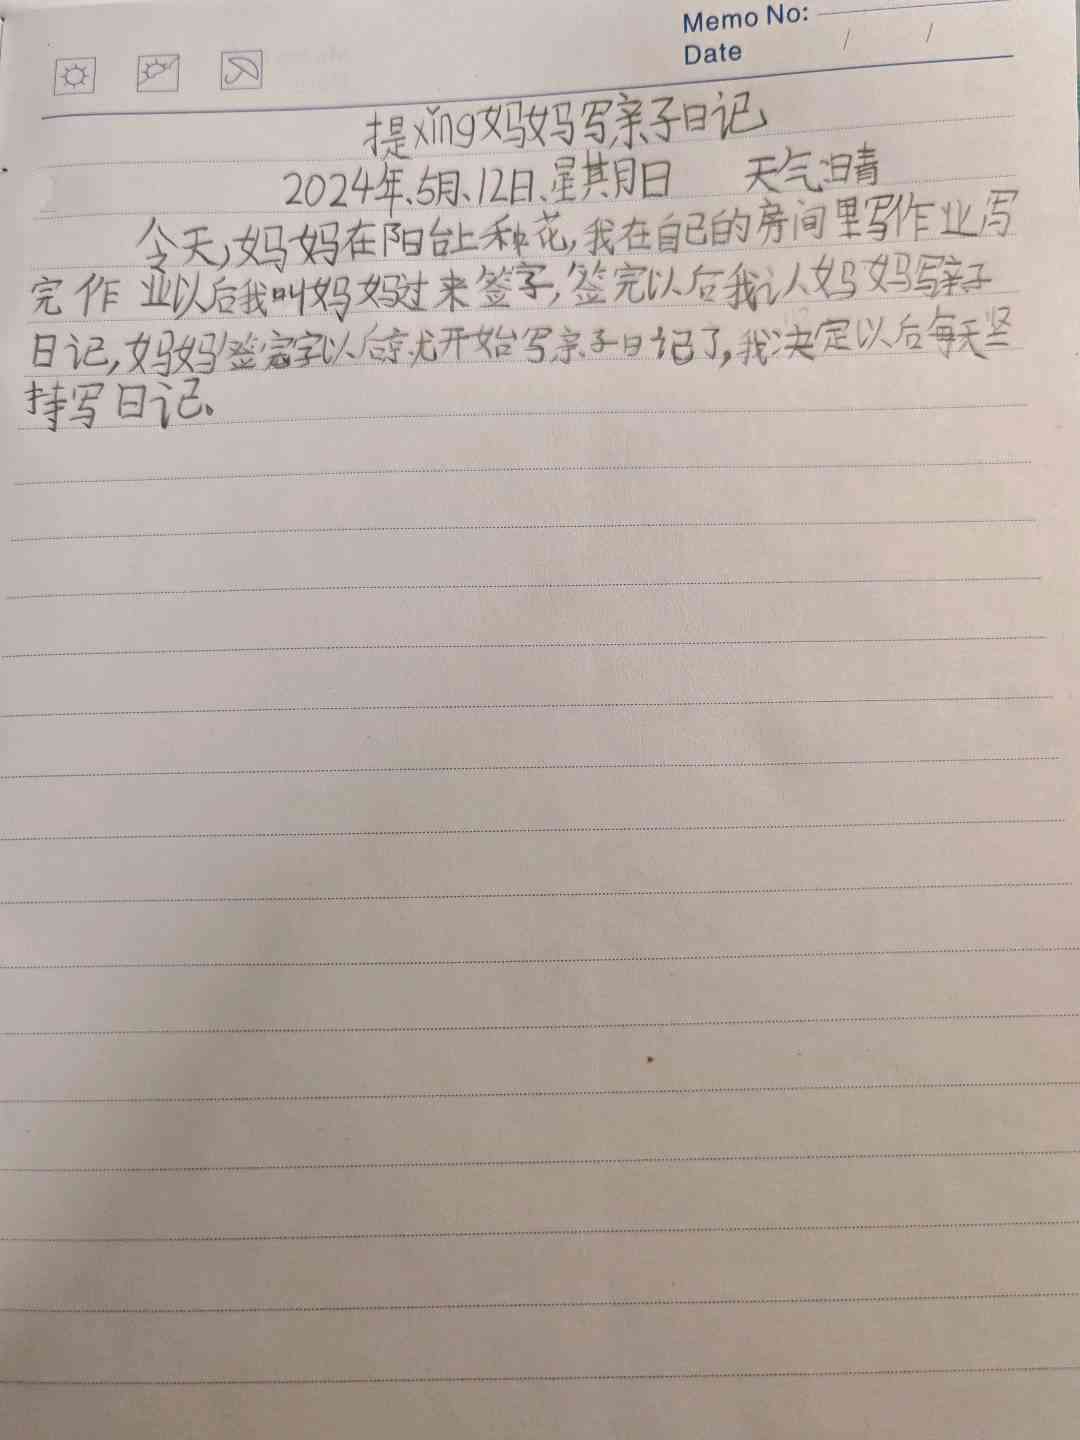 Memo No:
Date / /
提xǐng妈妈写亲子日记
2024年、5月、12日、星其月日 天气:晴
令天,妈妈在阳台上种花,我在自己的房间里写作业写
完作业以后我叫妈妈过来签字,签完以后我认人妈妈写亲子
日记,妈妈签完字以后就开始写亲子日记了,我决定以后每天坚
持写日记。